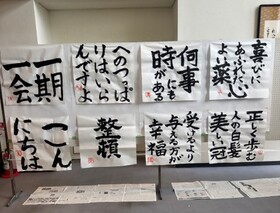 喜びに
あふれた心は
よい薬
何事
にも
時がある
へのつっぱ
りはいら
んですよ
一期
一会
正しく歩む
人の白髪
美しい冠
受けるより
与える方が
幸福
整頓
こん
にちは